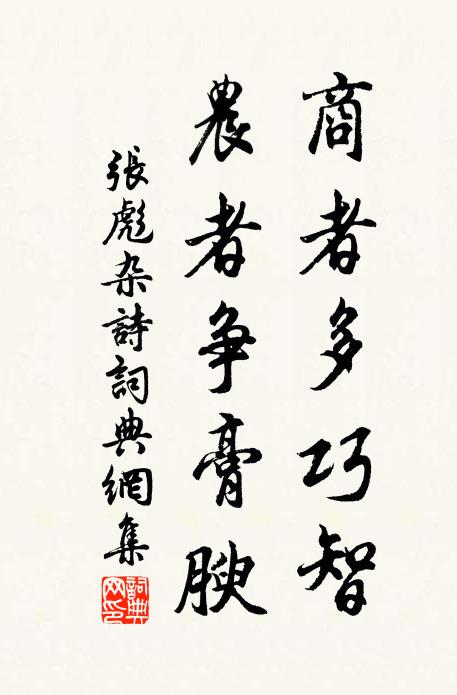 商者多巧智
農者争膏腴
張彪杂詩詞典網集
詞典網印